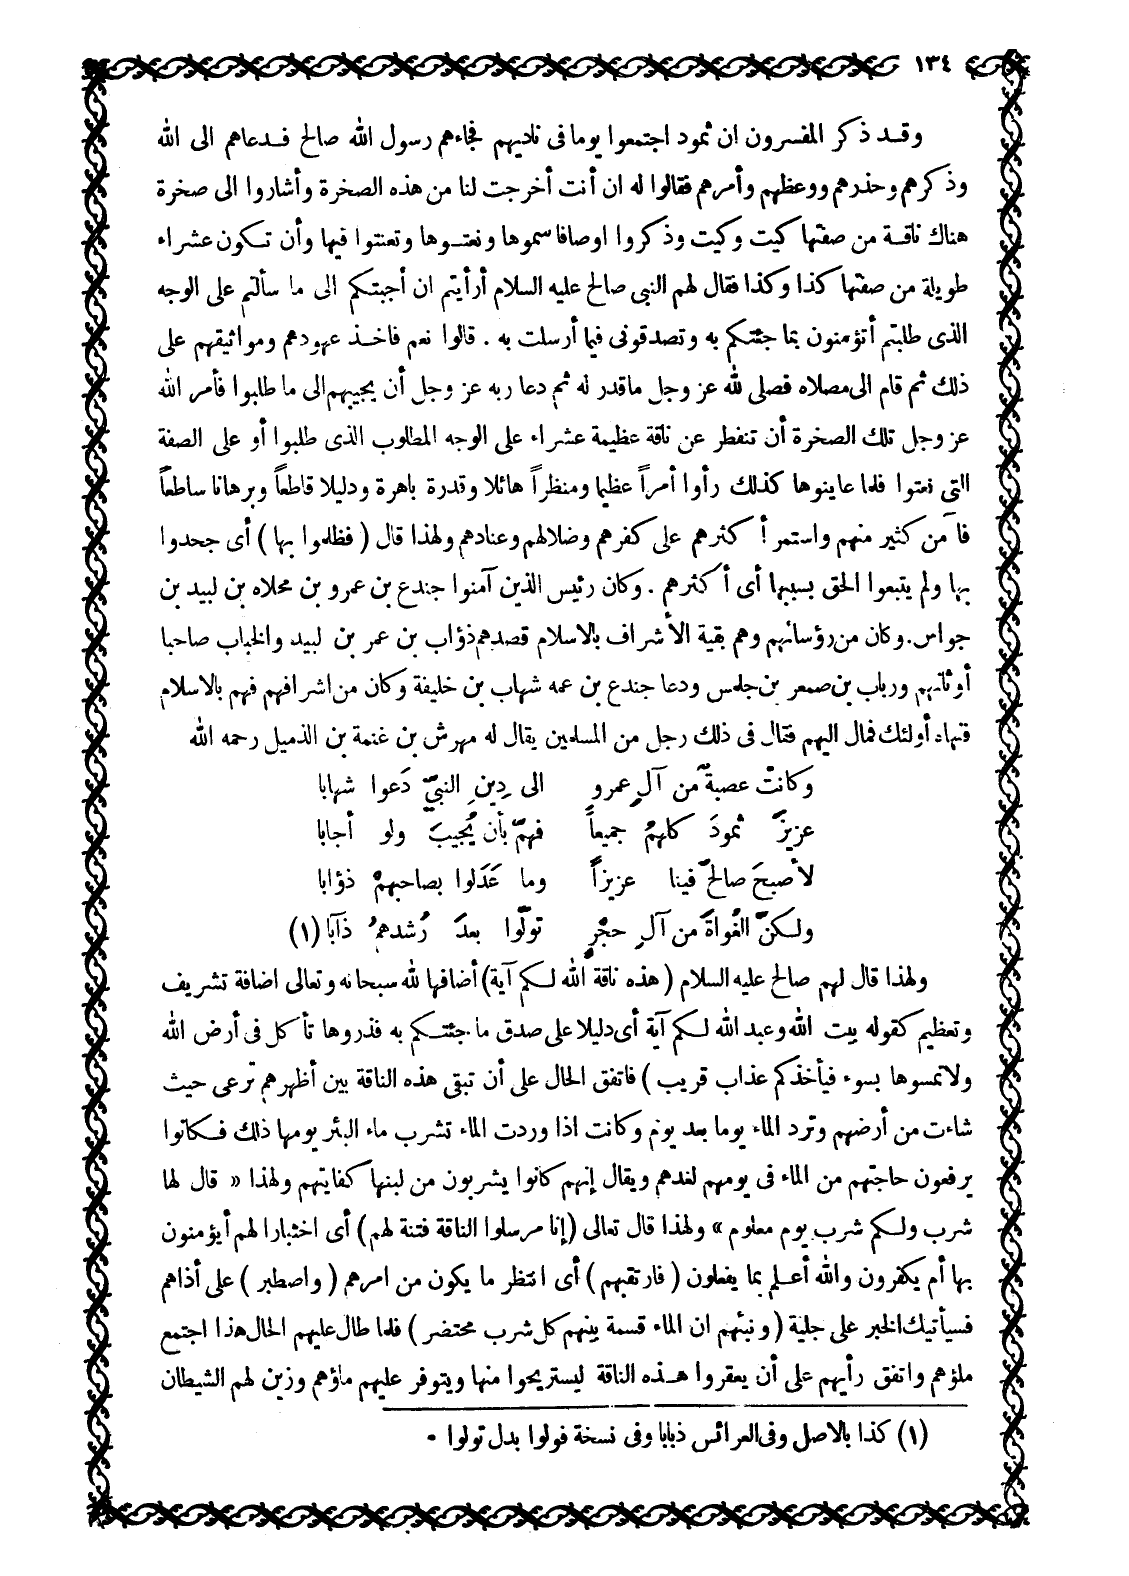 ١٣٤
وقـد ذكر المفسرون ان ثمود اجتمعوا يوما فى ناديهم فجاءهم رسول الله صالح فـدعاهم الى الله
وذكرهم وحذرهم ووعظهم وأمرهم فقالوا له ان أنت أخرجت لنا من هذه الصخرة وأشاروا الى صخرة
هناك ناقـة من صفتها كيت وكيت وذكروا اوصافا سموها ونعتـوها وتعنتوا فيها وأن تـكون عشراء
طويلة من صفتها كذا وكذا فقال لهم النبى صالح عليه السلام أرأيتم ان أجبتكم الى ما سألتم على الوجه
الذى طلبتم أتؤمنون بما جئتكم به وتصدقونى فيما أرسلت به . قالوا نعم فاخـذ عهودهم ومواثيقهم على
ذلك ثم قام الى مصلاه فصلى لله عز وجل ما قدر له ثم دعا ربه عز وجل أن يجيبهم الى ما طلبوا فأمر الله
عز وجل تلك الصخرة أن تنفطر عن ناقة عظيمة عشراء على الوجه المطلوب الذى طلبوا أو على الصفة
التى نعتوا فلما عاينوها كذلك رأوا أمراً عظيما ومنظراً هائلا وقدرة باهرة ودليلا قاطعاً وبرهانا ساطعاً
فآمن كثير منهم واستمر أكثرهم على كفرهم وضلالهم وعنادهم ولهذا قال ( فظلموا بها ) أى جحدوا
بها ولم يتبعوا الحق بسببها أى أكثرهم . وكان رئيس الذين آمنوا جندع بن عمرو بن محلاه بن لبيد بن
جواس. وكان من رؤسائهم وهم بقية الأشراف بالاسلام فصدهم ذؤاب بن عمر بن لبيد والخباب صاحبا
أوثانهم ورباب بن صمعر بن جلمس ودعا جندع بن عمه شهاب بن خليفة وكان من اشرافهم فهم بالاسلام
فنهاه أولئك فمال اليهم فقال فى ذلك رجل من المسلمين يقال له مهرش بن غنمة بن الذميل رحمه الله
وكانتْ عصبةٌ من آلِ عمرو الى دِينِ النبيّ دَعوا شهابا
عزيزَ ثمودَ كلهمُ جميعاً فهمّ بأن يُجيبَ ولو أجابا
لأصبحَ صالحٌ فينا عزيزاً وما عَدَلوا بصاحبهمْ ذؤابا
ولـكنّ الغُواةَ من آلِ حجْرٍ تولّوا بعدَ رُشدهمُ ذآبا (١)
ولهذا قال لهم صالح عليه السلام ( هذه ناقة الله لـكم آية) أضافها لله سبحانه وتعالى اضافة تشريف
وتعظيم كقوله بيت الله وعبد الله لـكم آية أى دليلا على صدق ما جئتـكم به فذروها تأكل فى أرض الله
ولا تمسوها بسوء فيأخذكم عذاب قريب ) فاتفق الحال على أن تبقى هذه الناقة بين أظهرهم ترعى حيث
شاءت من أرضهم وترد الماء يوما بعد يوم وكانت اذا وردت الماء تشرب ماء البئر يومها ذلك فـكانوا
يرفعون حاجتهم من الماء فى يومهم لغدهم ويقال إنهم كانوا يشربون من لبنها كفايتهم ولهذا « قال لها
شرب ولـكم شرب يوم معلوم » ولهذا قال تعالى (إنا مرسلوا الناقة فتنة لهم) أى اختبارا لهم أيؤمنون
بها أم يكفرون والله أعـلم بما يفعلون ( فارتقبهم ) أى انتظر ما يكون من امرهم ( واصطبر ) على أذاهم
فسيأتيك الخبر على جلية ( ونبئهم ان الماء قسمة بينهم كل شرب محتضر ) فلما طال عليهم الحال هذا اجتمع
ملؤهم واتفق رأيهم على أن يعقروا هـذه الناقة ليستريحوا منها ويتوفر عليهم ماؤهم وزين لهم الشيطان
(١) كذا بالاصل وفى العرائس ذبابا وفى نسخة فولوا بدل تولوا .